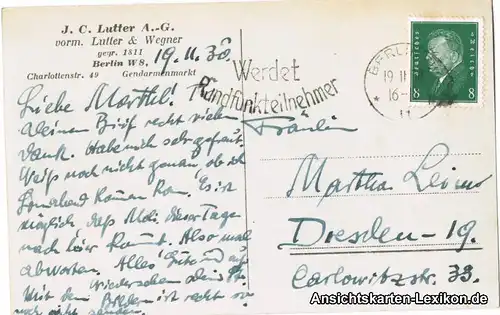 J. C. Lutter A.-G.
vorm. Lutter & Wegner
gegr. 1811
Berlin W8, 19.11.30.
Charlottenstr. 49 Gendarmenmarkt
Werdet
Rundfunkteilnehmer
BERLIN
19.11
16-
Deutsches Reich
8 8
Liebe Marthel!
Deinen Brief recht vielen
Dank. Habe mich sehr gefreut.
Weiß noch nicht genau ob ich
Sonnabend kommen kann. Es ist
möglich, daß diese Tage
nach kommt. Also mal
abwarten. Alles Gute und auf
Wiedersehen Dein
Mit dem ist recht
nicht
Fräulein
Martha
Dresden-19.
Carlowitzstr. 33.
Ansichtskarten-Lexikon.de